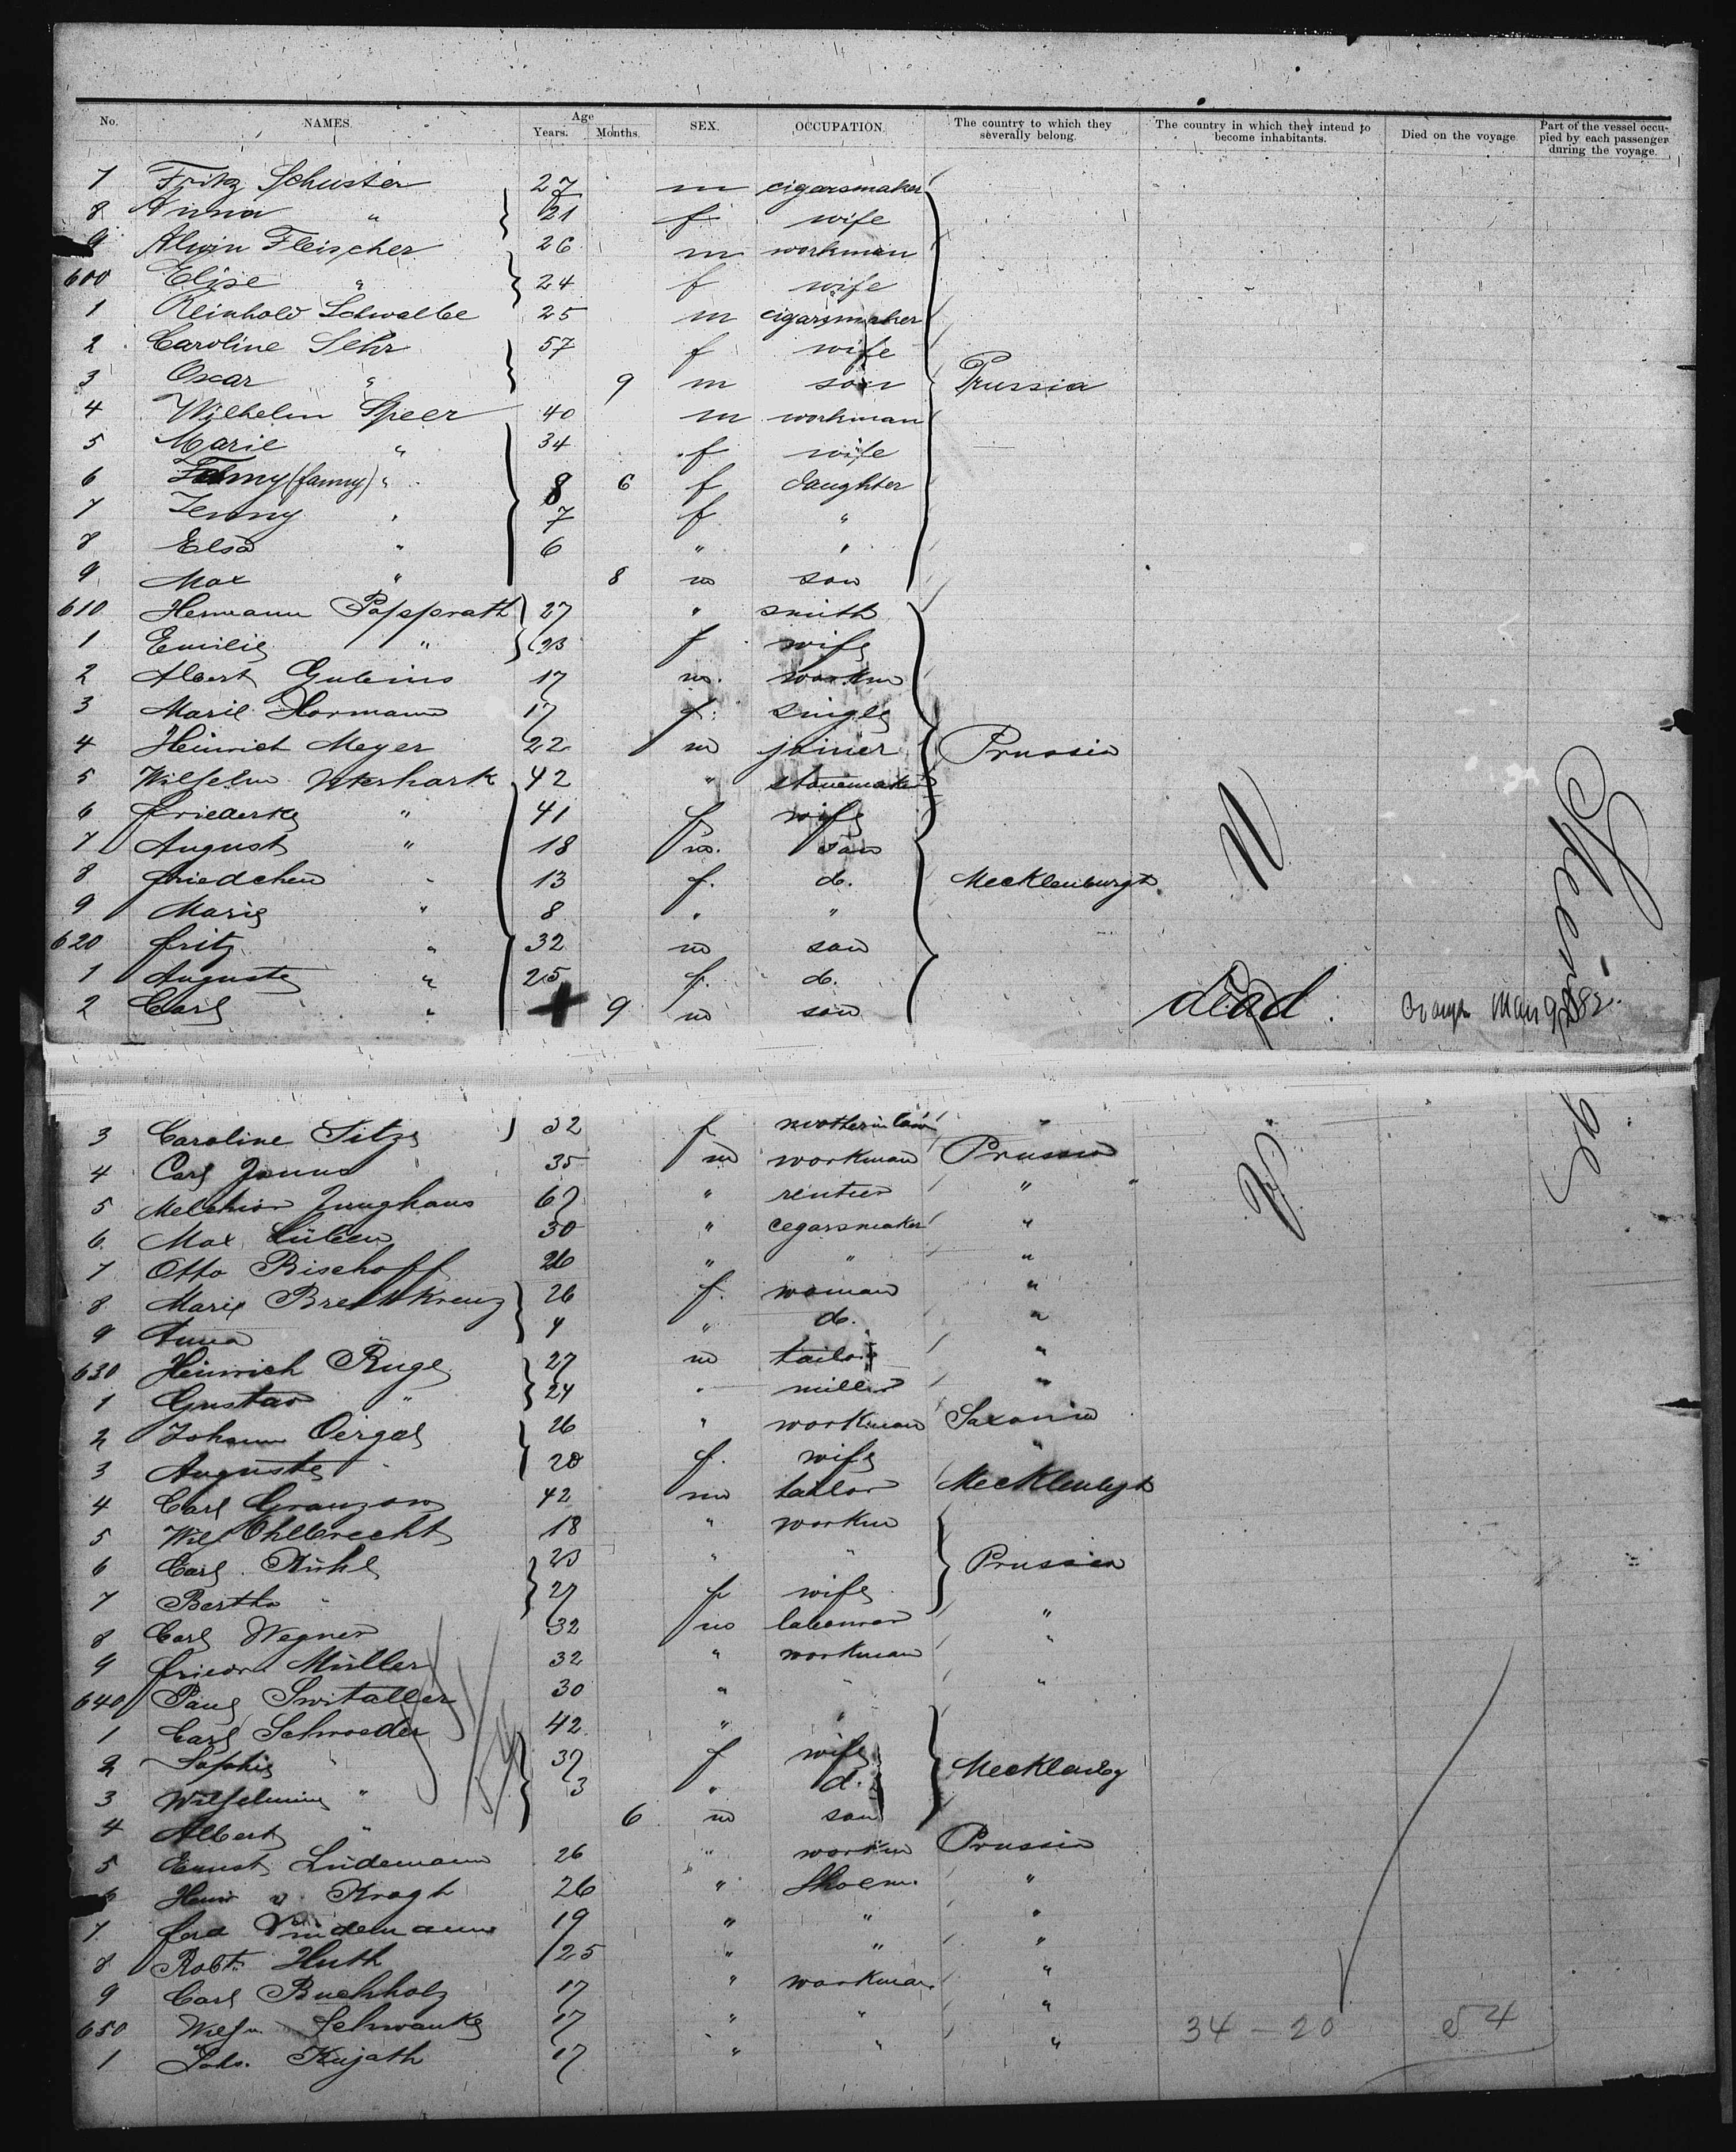 No. NAMES. Age Years. Months. SEX. OCCUPATION. The country to which they severally belong. The country in which they intend to become inhabitants. Died on the voyage Part of the vessel occupied by each passenger during the voyage.
7 Fritz Schuster 27 m cigarsmaker
8 Anna " 21 f wife
9 Alwin Fleischer 26 m workman
600 Elise " 24 f wife
1 Reinhold Schwalbe 25 m cigarsmaker
2 Caroline Sehr 57 f wife
3 Oscar " 9 m son Prussia
4 Wilhelm Speer 40 m workman
5 Marie " 34 f wife
6 Fanny (fanny) " 8 6 f daughter
7 Jenny " 7 f "
8 Elsa " 6 " "
9 Max " 8 m son
610 Hermann Papprath 27 " smith
1 Emilie " 23 f wife
2 Albert 17 m. workm
3 Marie Hormann 17 f. single
4 Heinrich Meyer 22 m joiner Prussia
5 Wilhelm 42 "
6 friederke " 41 f wife
7 August " 18 m. son
8 friedchen " 13 f. d. Mecklenburgh
9 Marie " 8 " "
620 fritz " 32 m son
1 Auguste " 25 f. d.
2 Carl " + 9 m son dead
Steerage
3 Caroline Sitze 32 f motherinlaw "
4 Carl 35 m workman Prussia
5 Melchior Junghans 67 " rentier " "
6 Max 30 " cegarsmaker "
7 Otto Bischoff 26 " " "
8 Marie Breitkreuz 26 f. woman "
9 Anna 4 " d. "
630 Heinrich Ruge 27 m tailor "
1 Gustav " 24 " miller "
2 Johann 26 " workman Saxonia
3 Auguste " 28 f. wife "
4 Carl Granzow 42 m tailor Mecklenbgh
5 Wilh Ohlbrecht 18 " workm
6 Carl Kuhl 23 " " Prussia
7 Bertha " 27 f wife
8 Carl Wegner 32 m "
9 friedr Müller 32 " workman "
640 Paul Switaller 30 " " "
1 Carl Schroeder 42 " "
2 Sophie " 37 f wife Mecklenbg
3 Wilhelmine " 3 " d.
4 Albert " 6 m son
5 Ernst Lüdemann 26 " workm Prussia
6 Heinr v. Kragh 26 " Shoem. "
7 ferd 19 " " "
8 Robt. Huth 25 " " "
9 Carl Buchholz 17 " workman "
650 Wilh. Schwanke 17 " " "
1 Johs. Kujath 17 " " "
34 – 20 54